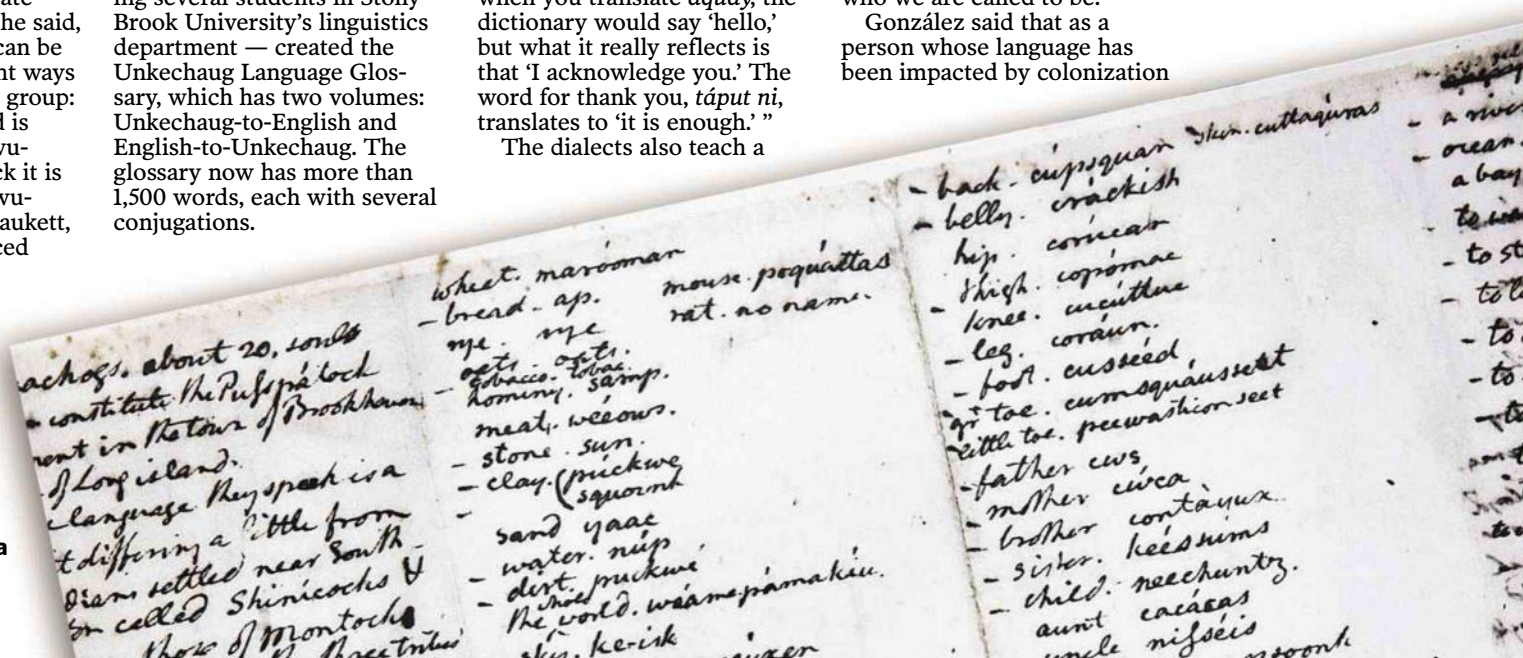 he said,
can be
nt ways
group:
d is
vu-
ck it is
wu-
aukett,
ced
a
ing several students in Stony
Brook University’s linguistics
department — created the
Unkechaug Language Glos-
sary, which has two volumes:
Unkechaug-to-English and
English-to-Unkechaug. The
glossary now has more than
1,500 words, each with several
conjugations.
when you translate aquay, the
dictionary would say ‘hello,’
but what it really reflects is
that ‘I acknowledge you.’ The
word for thank you, táput ni,
translates to ‘it is enough.’ ”
The dialects also teach a
who we are called to be.
González said that as a
person whose language has
been impacted by colonization
achogs. about 20. souls
constitute the Puspátock
ent in the town of Brookhaven
of Long island.
language they speak is a
t differing a little from
dians settled near South
on called Shinicocks &
those of Montocks
three tribes
wheat. marooman
- bread. ap.
rye. rye
oats. oats.
tobacco. tobac.
hominy. samp.
meat. weeows.
- stone. sun.
- clay. (puckwe
squoint
sand yaac
- water. núp
- dirt puckwé
the whole world. wéame pámakiu.
ke-isk
mouse. poquáttas
rat. no name.
- back. cúpsquan skin. cuttaqúras
- belly. cráckish
hip. corúcan
- thigh. copómac
knee. cucúttuc
- leg. coráun.
- foot. cusséed
gr toe. cumsquáusseet
little toe. peewasticonseet
- father cws
- mother cwca
- brother contáyux.
- sister. keéssums
- child. neechuntz.
aunt cacácas
uncle nisséis
- a river
- ocean.
a bay
- to st
- to
- to
- to